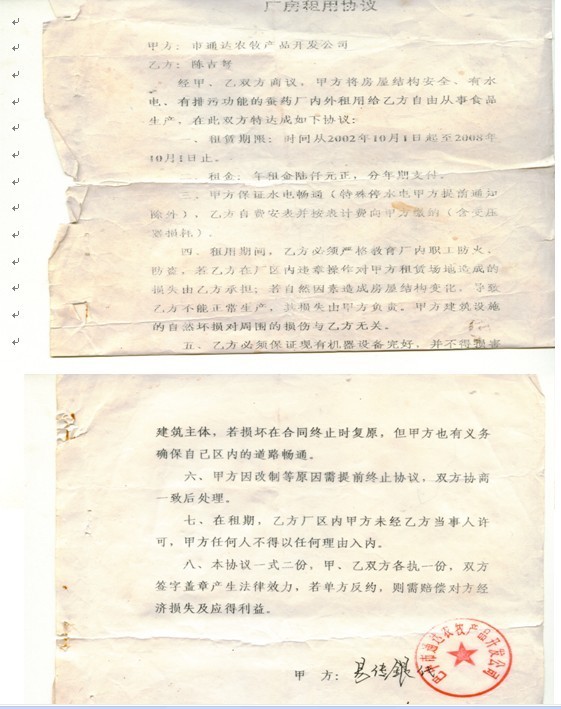 厂房租用协议
甲方：市通达农牧产品开发公司
乙方：陈吉
经甲、乙双方商议，甲方将房屋结构安全、有水
电、有排污功能的蚕药厂内外租用给乙方自由从事食品
生产，在此双方特达成如下协议：
一、租赁期限：时间从2002年10月1日起至2008年
10月1日止。
二、租金：年租金陆仟元正，分年期支付。
三、甲方保证水电畅通（特殊停水电甲方提前通知
除外），乙方自费安表并按表计费向甲方缴的（含变压
器损耗）。
四、租用期间，乙方必须严格教育厂内职工防火、
防盗，若乙方在厂区内违章操作对甲方租赁场地造成的
损失由乙方承担；若自然因素造成房屋结构变化，导致
乙方不能正常生产，其损失由甲方负责。甲方建筑设施
的自然坏损对周围的损伤与乙方无关。
五、乙方必须保证现有机器设备完好，并不得损害
建筑主体，若损坏在合同终止时复原，但甲方也有义务
确保自己区内的道路畅通。
六、甲方因改制等原因需提前终止协议，双方协商
一致后处理。
七、在租期，乙方厂区内甲方未经乙方当事人许
可，甲方任何人不得以任何理由入内。
八、本协议一式二份，甲、乙双方各执一份，双方
签字盖章产生法律效力，若单方反约，则需赔偿对方经
济损失及应得利益。
甲 方：易传银
市通达农牧产品开发公司